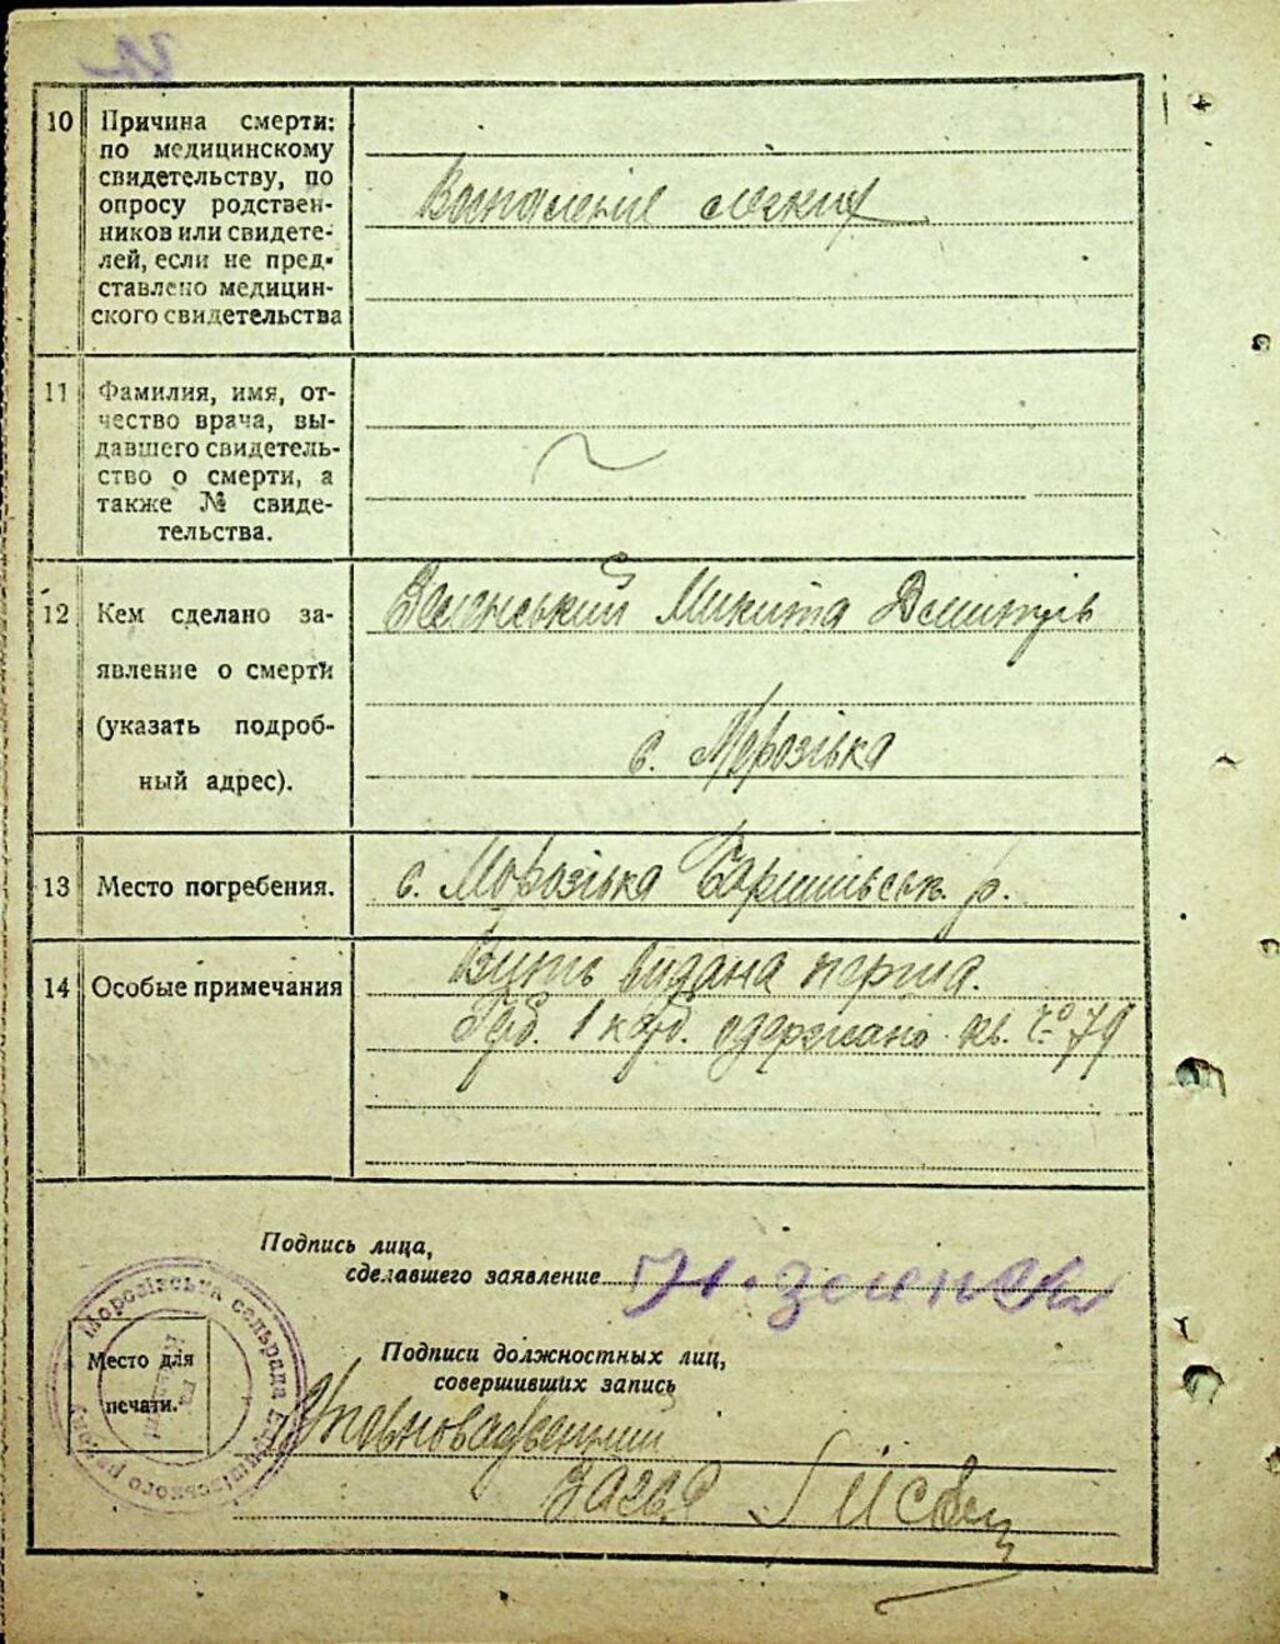 10 Причина смерти:
по медицинскому
свидетельству, по
опросу родствен-
ников или свидете-
лей, если не пред-
ставлено медицин-
ского свидетельства
Воспаление легких
11 Фамилия, имя, от-
чество врача, вы-
давшего свидетель-
ство о смерти, а
также № свиде-
тельства.
12 Кем сделано за-
явление о смерти
(указать подроб-
ный адрес).
Зеленський Микита
с. Морозівка
13 Место погребения.
с. Морозівка р.
14 Особые примечания
видана перша.
1 карб. одержано кв. № 79
Подпись лица,
сделавшего заявление
Место для
печати.
Морозівська сельрада
району
Подписи должностных лиц,
совершивших запись
Уповноважений
ЗАГСа